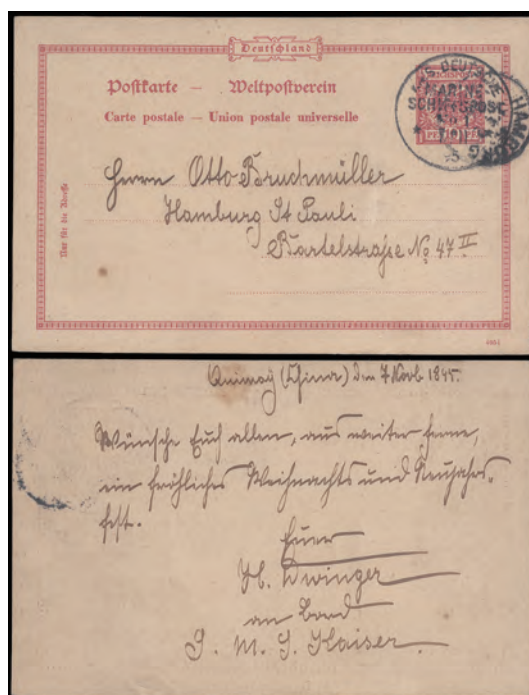 Deutschland
Postkarte — Weltpostverein
Carte postale — Union postale universelle
KAIS. DEUTSCHE
MARINE
SCHIFFSPOST
No 1
HAMBURG
Nur für die Adresse
Herrn Otto Bruchmüller
Hamburg St Pauli
Bartelstraße No 47 II
Quimoy (China) den 7 Novb 1895.
Wünsche Euch allen, aus weiter Ferne,
ein fröhliches Weihnachts und Neujahrs-
fest.
Euer
H. Dwinger
an Bord
S. M. S. Kaiser.